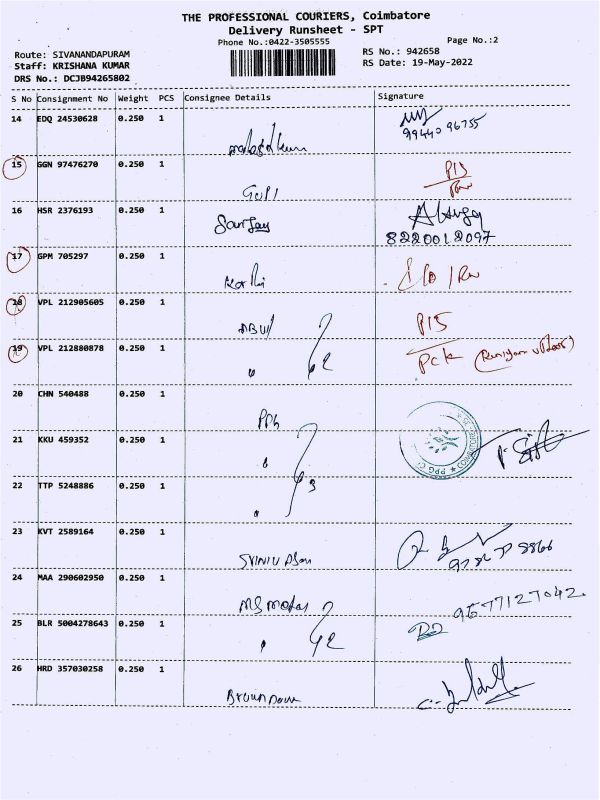 THE PROFESSIONAL COURIERS, Coimbatore
Delivery Runsheet - SPT
Phone No.:0422-3505555
Page No.:2
Route: SIVANANDAPURAM
RS No.: 942658
Staff: KRISHANA KUMAR
RS Date: 19-May-2022
DRS No.: DCJB94265802
S No Consignment No Weight PCS Consignee Details Signature
14 EDQ 24530628 0.250 1
99440 96755
15 GGN 97476270 0.250 1
GOPI
16 HSR 2376193 0.250 1
Sanjay
8220012097
17 GPM 705297 0.250 1
18 VPL 212905605 0.250 1
ABUl P15
19 VPL 212880878 0.250 1
20 CHN 540488 0.250 1
21 KKU 459352 0.250 1
22 TTP 5248886 0.250 1
23 KVT 2589164 0.250 1
24 MAA 290602950 0.250 1
9677127042
25 BLR 5004278643 0.250 1
26 HRD 357030258 0.250 1